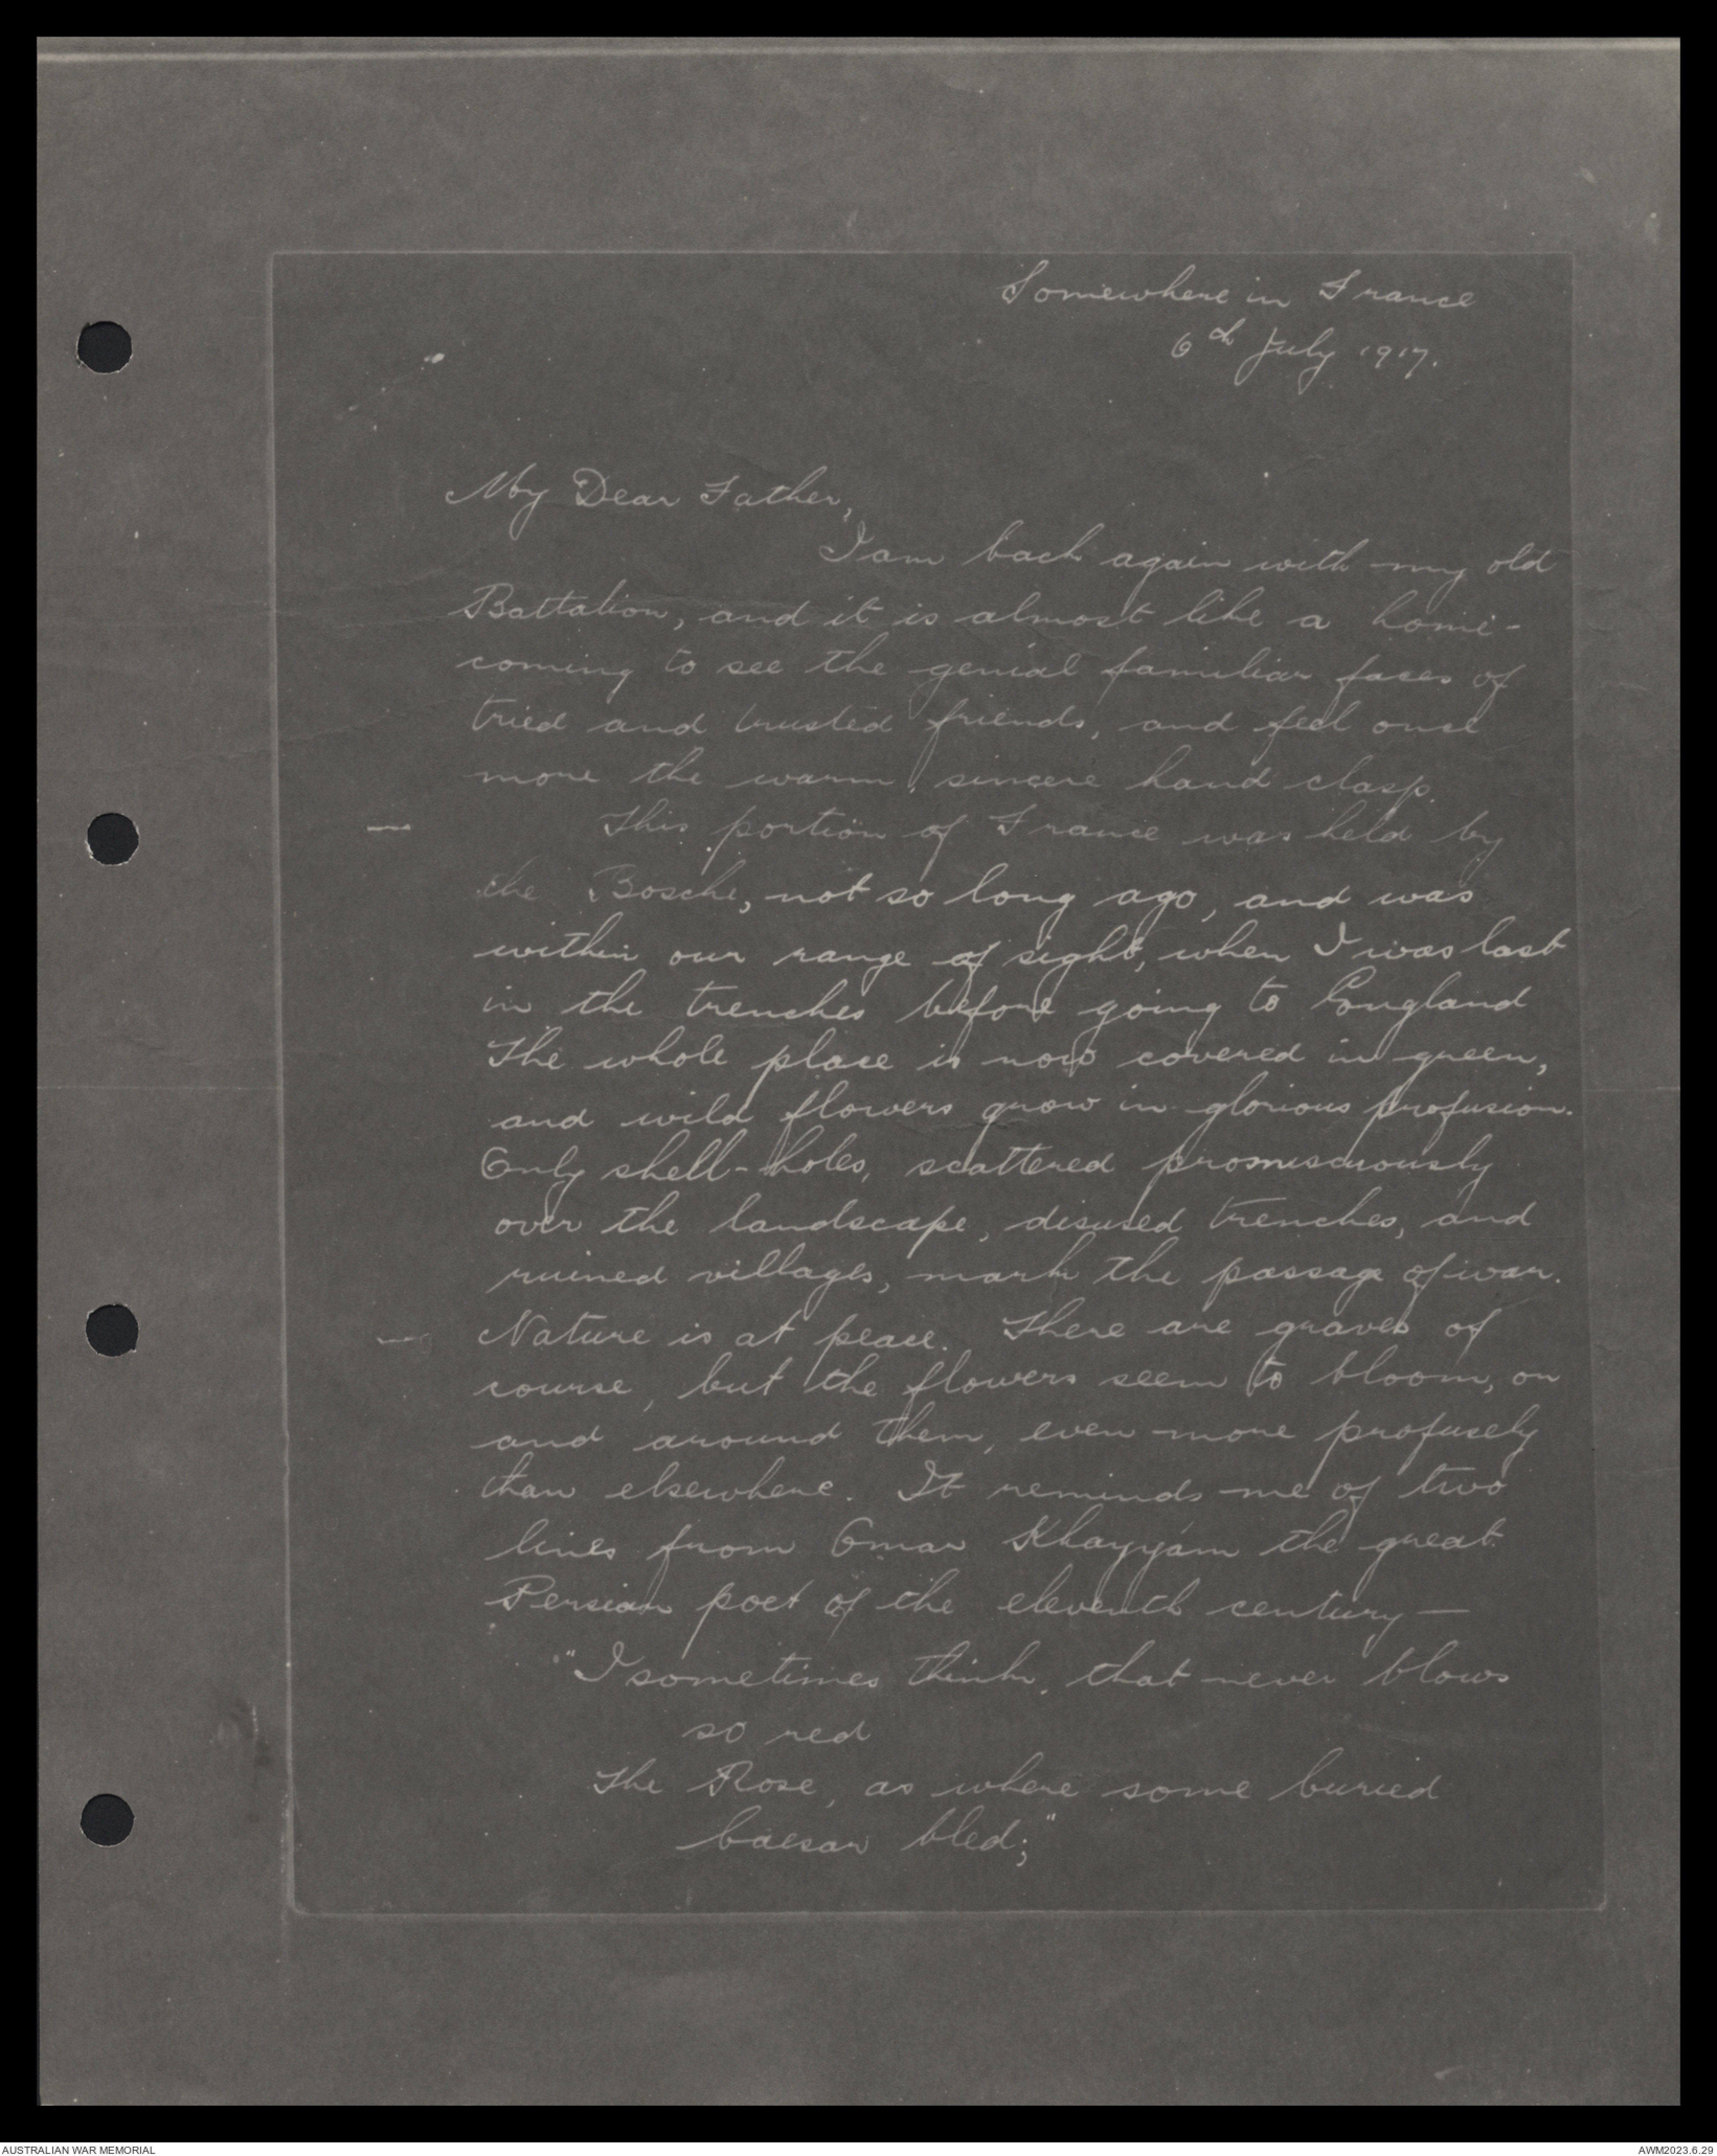 Somewhere in France
6th July 1917.
My Dear Father,
I am back again with my old
Battalion, and it is almost like a home-
coming to see the genial familiar faces of
tried and trusted friends, and feel once
more the warm, sincere hand clasp.
This portion of France was held by
the Bosche, not so long ago, and was
within our range of sight, when I was last
in the trenches before going to England
The whole place is now covered in green,
and wild flowers grow in glorious profusion.
Only shell-holes, scattered promiscuously
over the landscape, disused trenches, and
ruined villages, mark the passage of war.
Nature is at peace. There are graves of
course, but the flowers seem to bloom, on
and around them, even more profusely
than elsewhere. It reminds me of two
lines from Omar Khayyám the great
Persian poet of the eleventh century —
"I sometimes think, that never blows
so red
The Rose, as where some buried
Caesar bled;"
AUSTRALIAN WAR MEMORIAL
AWM2023.6.29